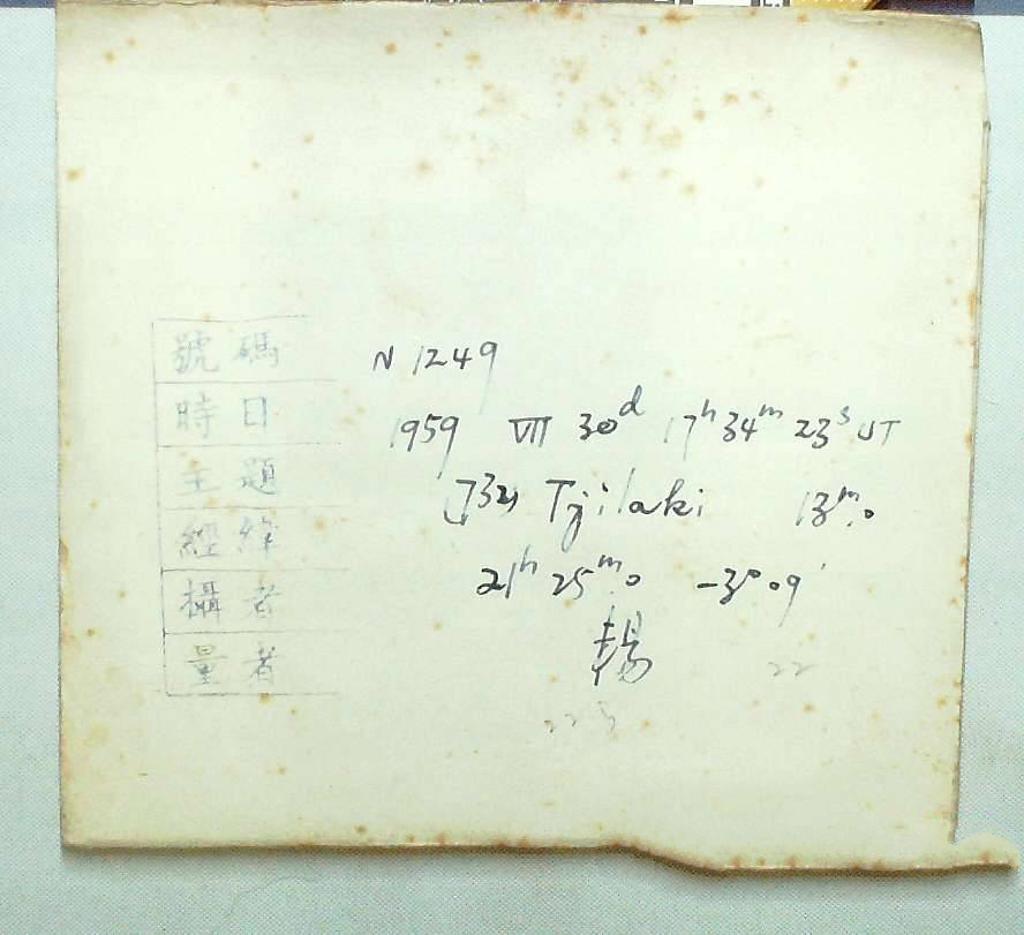 號碼 N 1249
時日 1959 VII 30ᵈ 17ʰ 34ᵐ 23ˢ UT
主題 (732) Tjilaki 13ᵐ.0
經緯 21ʰ 25ᵐ.0 -3°09′
攝者
量者
22
225